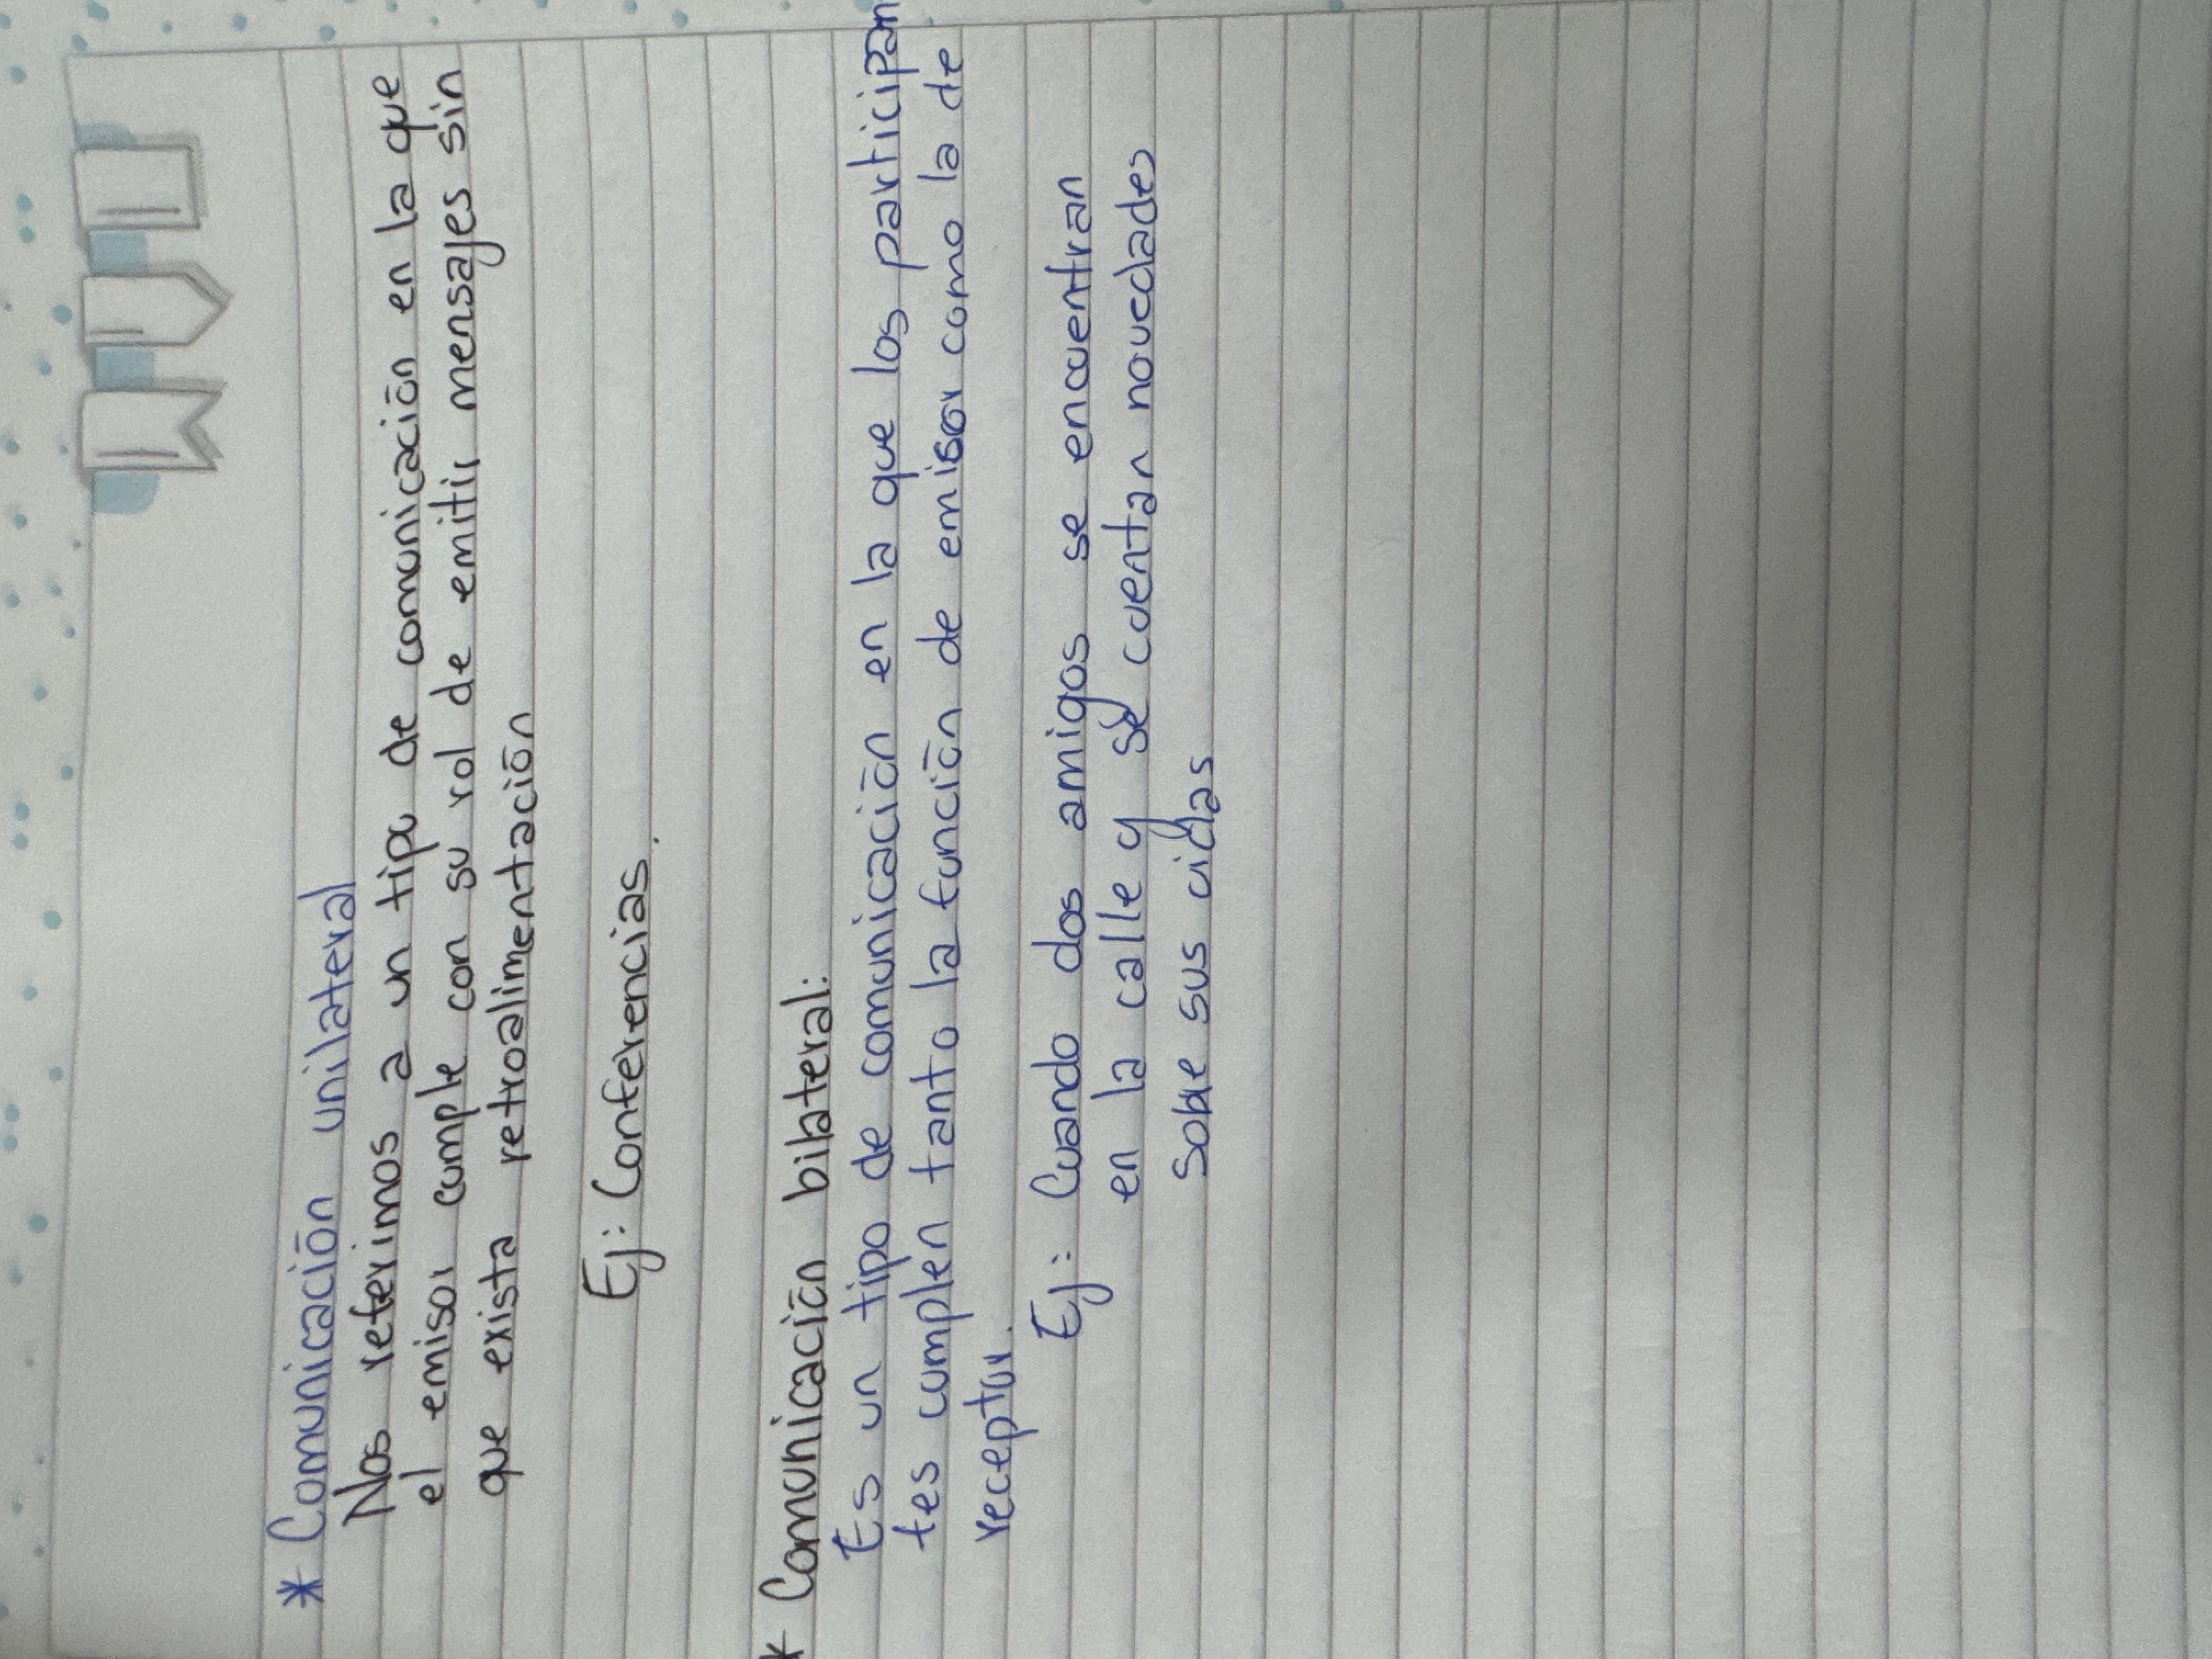 * Comunicación unilateral
Nos referimos a un tipo de comunicación en la que
el emisor cumple con su rol de emitir mensajes sin
que exista retroalimentación
Ej: Conferencias.
* Comunicación bilateral:
Es un tipo de comunicación en la que los participan
tes cumplen tanto la función de emisor como la de
receptor.
Ej: Cuando dos amigos se encuentran
en la calle y se cuentan novedades
sobre sus vidas